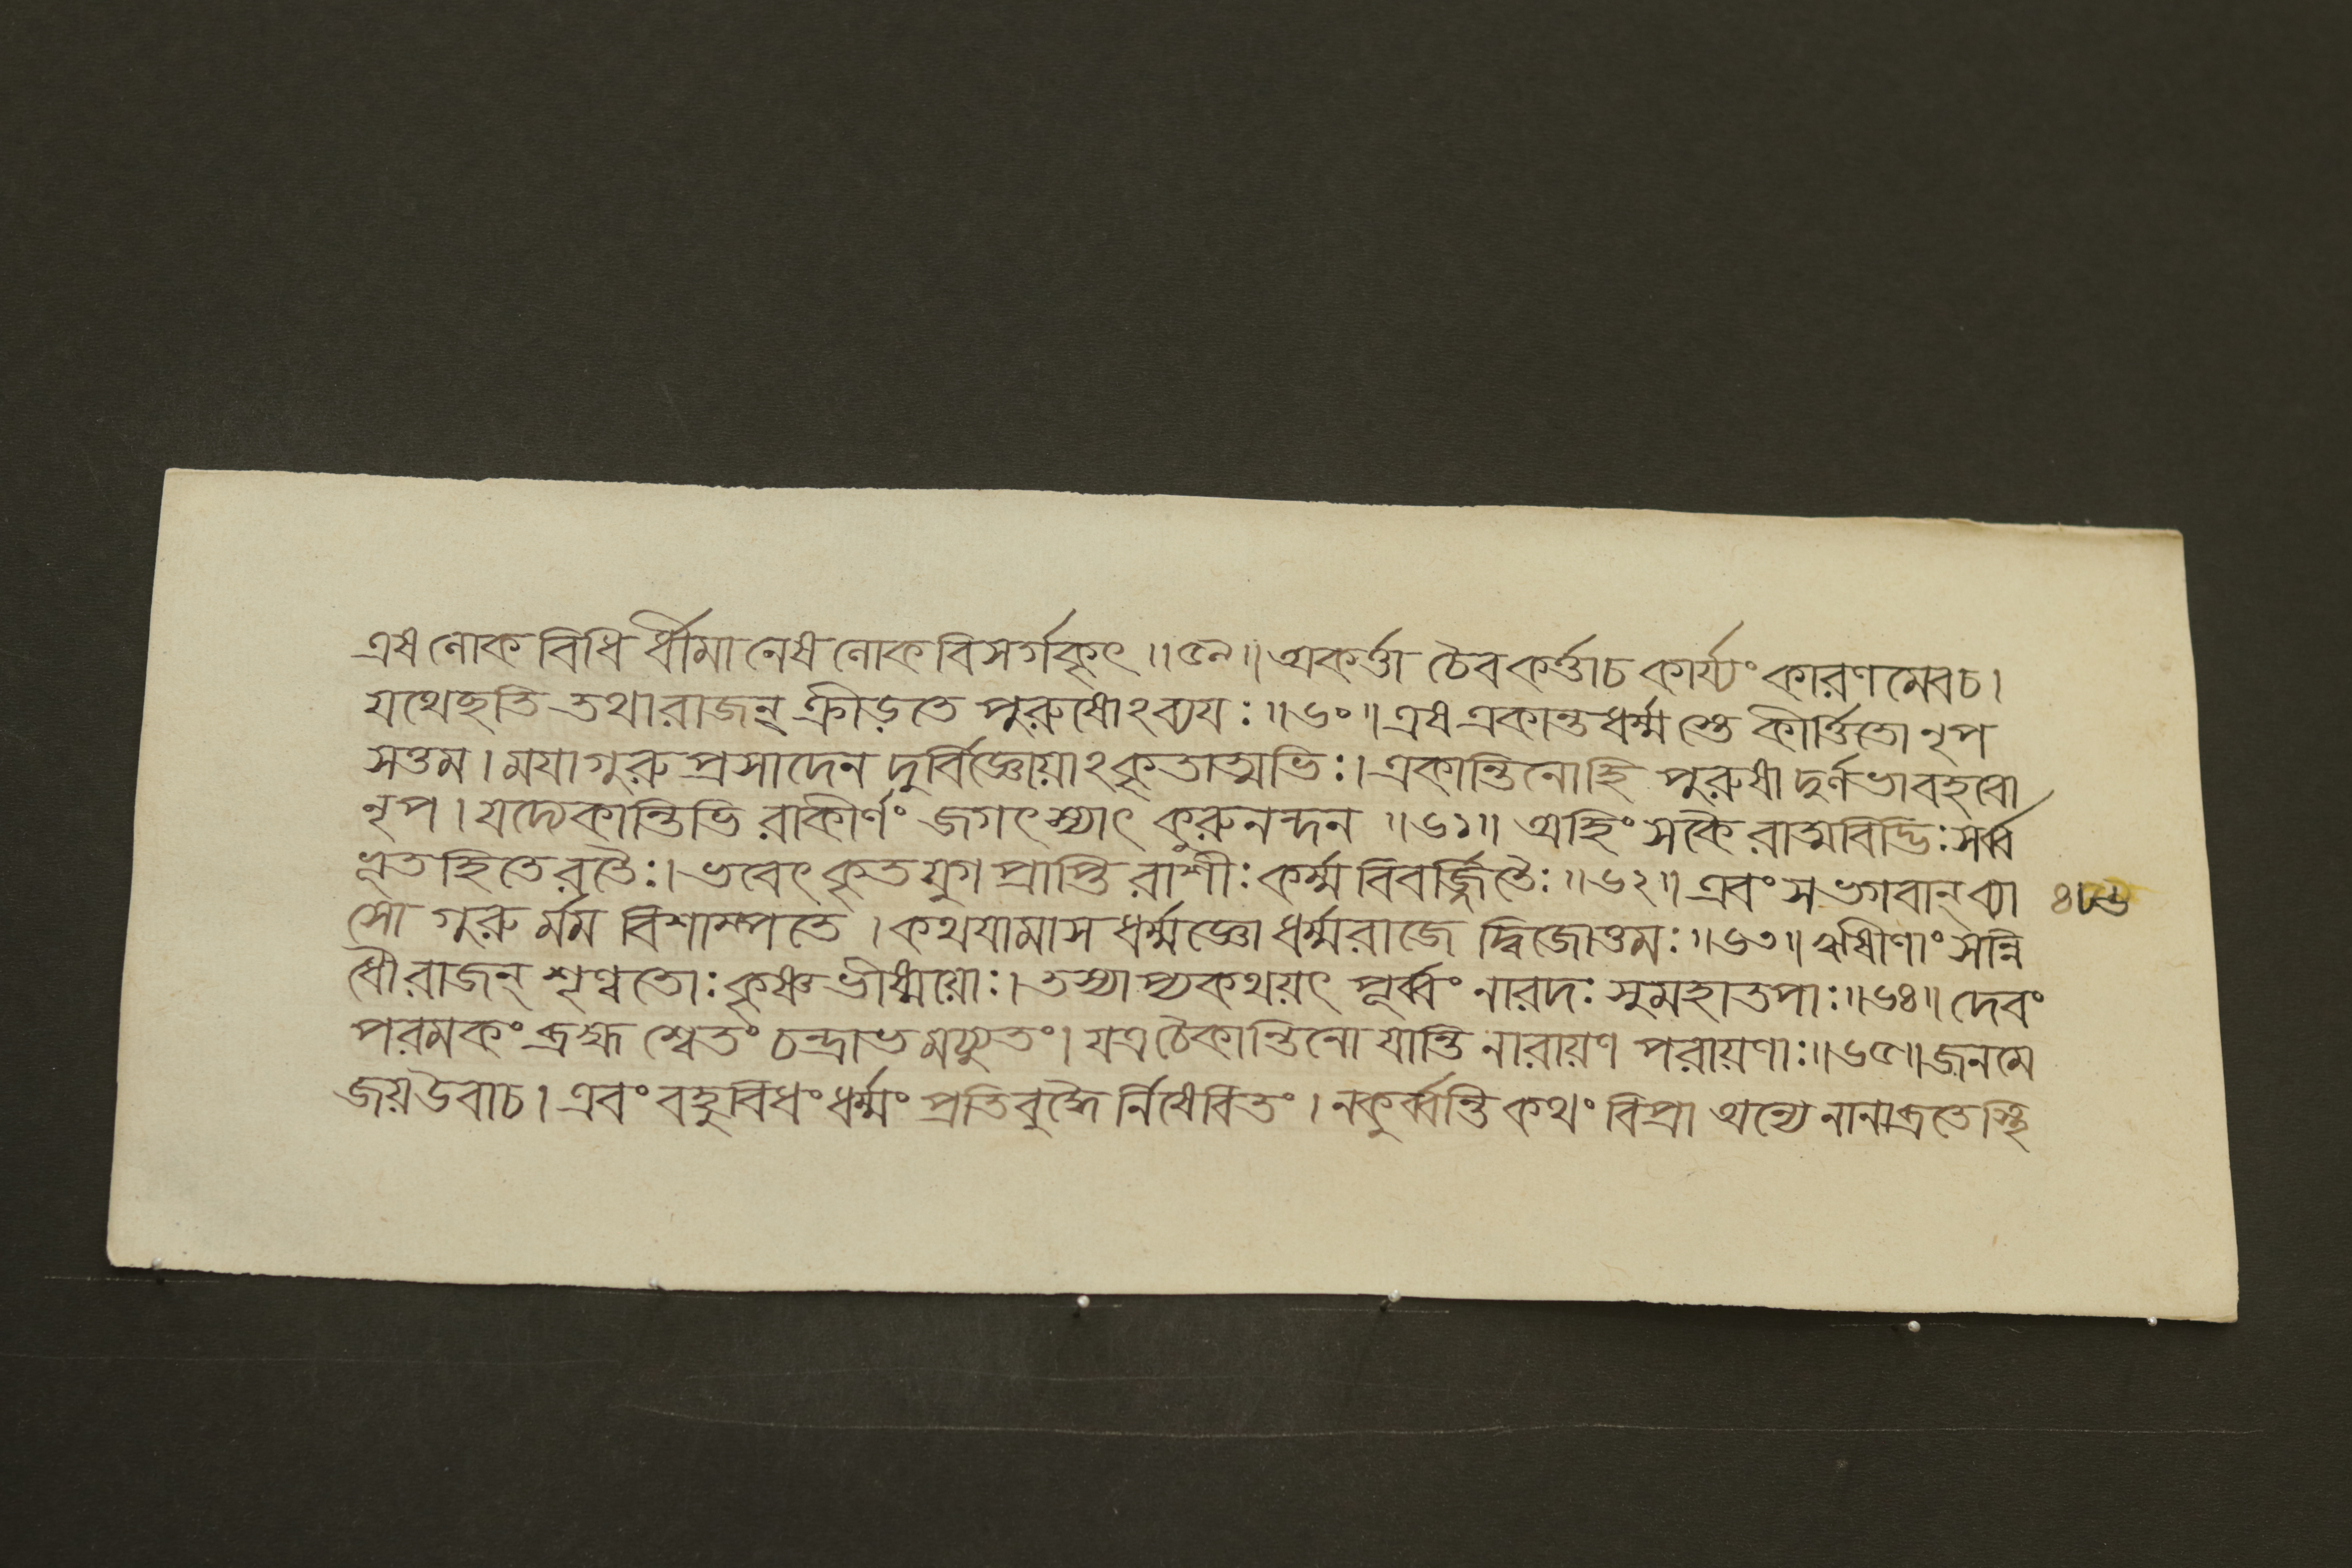 এষ লোক বিধি র্ধীমা নেষ লোক বিসর্গকৃৎ ॥৫৯॥ অকর্ত্তা চৈব কর্ত্তাচ কার্য্যং কারণ মেবচ।
যথেচ্ছতি তথা রাজন্ ক্রীড়তে পুরুষোঽব্যয়ঃ ॥৬০॥ এষ একান্ত ধর্ম্ম স্তে কীর্ত্তিতো নৃপ
সত্তম। ময়া গুরু প্রসাদেন দুর্বিজ্ঞেয়াঽকৃতাত্মভিঃ। একান্তিনোহি পুরুষা দুর্লভা বহবো
নৃপ। যদ্যেকান্তিভি রাকীর্ণং জগৎ স্যাৎ কুরুনন্দন ॥৬১॥ অহিং সকৈ রাত্মবিদ্ভিঃ সর্ব্ব
ভূত হিতে রতৈঃ। ভবেৎ কৃত যুগ প্রাপ্তি রাশীঃ কর্ম্ম বিবর্জ্জিতৈঃ ॥৬২॥ এবং স ভগবান্ ব্যা
সো গুরু র্মম বিশাম্পতে। কথয়ামাস ধর্ম্মজ্ঞো ধর্ম্মরাজে দ্বিজোত্তমঃ ॥৬৩॥ ঋষীণাং সন্নি
ধৌ রাজন্ শৃণ্বতোঃ কৃষ্ণ ভীষ্ময়োঃ। তস্যাপ্যকথয়ৎ পূর্ব্বং নারদঃ সুমহাতপাঃ ॥৬৪॥ দেবং
পরমকং ব্রহ্ম শ্বেতং চন্দ্রাভ মচ্যুতং। যত্র চৈকান্তিনো যান্তি নারায়ণ পরায়ণাঃ ॥৬৫॥ জনমে
জয় উবাচ। এবং বহুবিধং ধর্ম্মং প্রতিবুদ্ধৈ র্নিষেবিতং। ন কুর্ব্বন্তি কথং বিপ্রা অন্যে নানাব্রতে স্থি